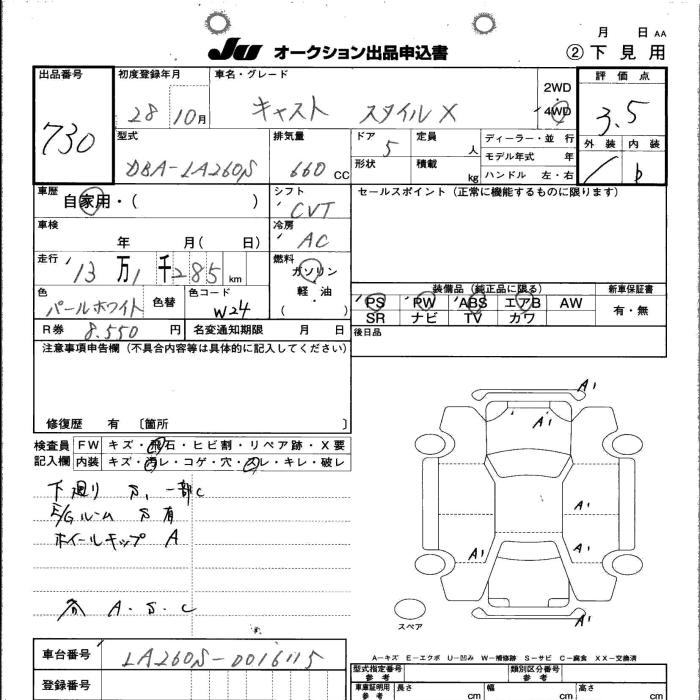 月 日 AA
JU オークション出品申込書 ②下見用
出品番号 初度登録年月 車名・グレード 評価点
730 28 10月 キャスト スタイルX 2WD 4WD 3.5
型式 排気量 ドア 定員 ディーラー・並行 外装 内装
DBA-LA260S 660 CC 5 人 モデル年式 年
形状 積載 kg ハンドル 左・右 b
車歴 シフト セールスポイント(正常に機能するものに限ります)
自家用・( ) CVT
車検 冷房
年 月( 日) AC
走行 燃料
13万1千285km ガソリン
色 色替 色コード 軽・油 装備品(純正品に限る) 新車保証書
パールホワイト W24 ( ) PS PW ABS エアB AW 有・無
SR ナビ TV カワ
R券 8.550 円 名変通知期限 月 日 後日品
注意事項申告欄(不具合内容等は具体的に記入してください)
修復歴 有 〔箇所 〕
検査員 FW キズ・飛石・ヒビ割・リペア跡・X要
記入欄 内装 キズ・汚レ・コゲ・穴・スレ・キレ・破レ
下廻り S、一部C
E/Gルーム S有
ホイールキップ A
A.S.C
A1
A1
A1
A1
A1
A1
スペア
A－キズ E－エクボ U－凹み W－補修跡 S－サビ C－腐食 XX－交換済
車台番号 LA260S-0016115
登録番号
型式指定番号 参考 類別区分番号 参考
車庫証明用 参考 長さ cm 幅 cm 高さ cm